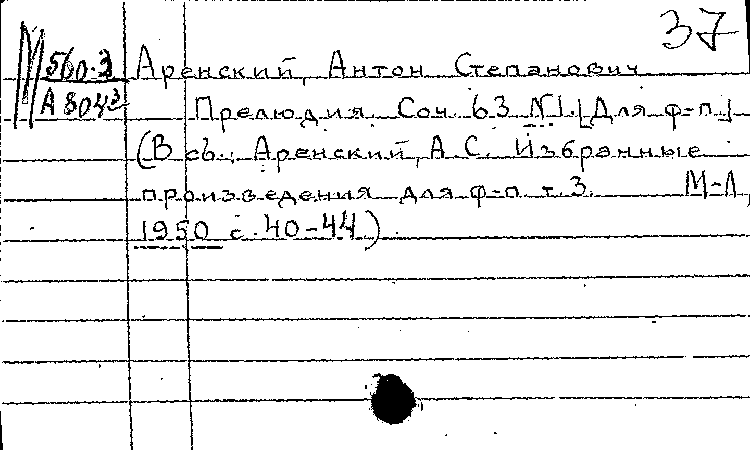 37
М 560.3 Аренский, Антон Степанович
А 804³ Прелюдия. Соч. 63 №1. [Для ф-п.]
(В сб.: Аренский, А.С. Избранные
произведения для ф-п т.3. М-Л,
1950 с. 40-44).